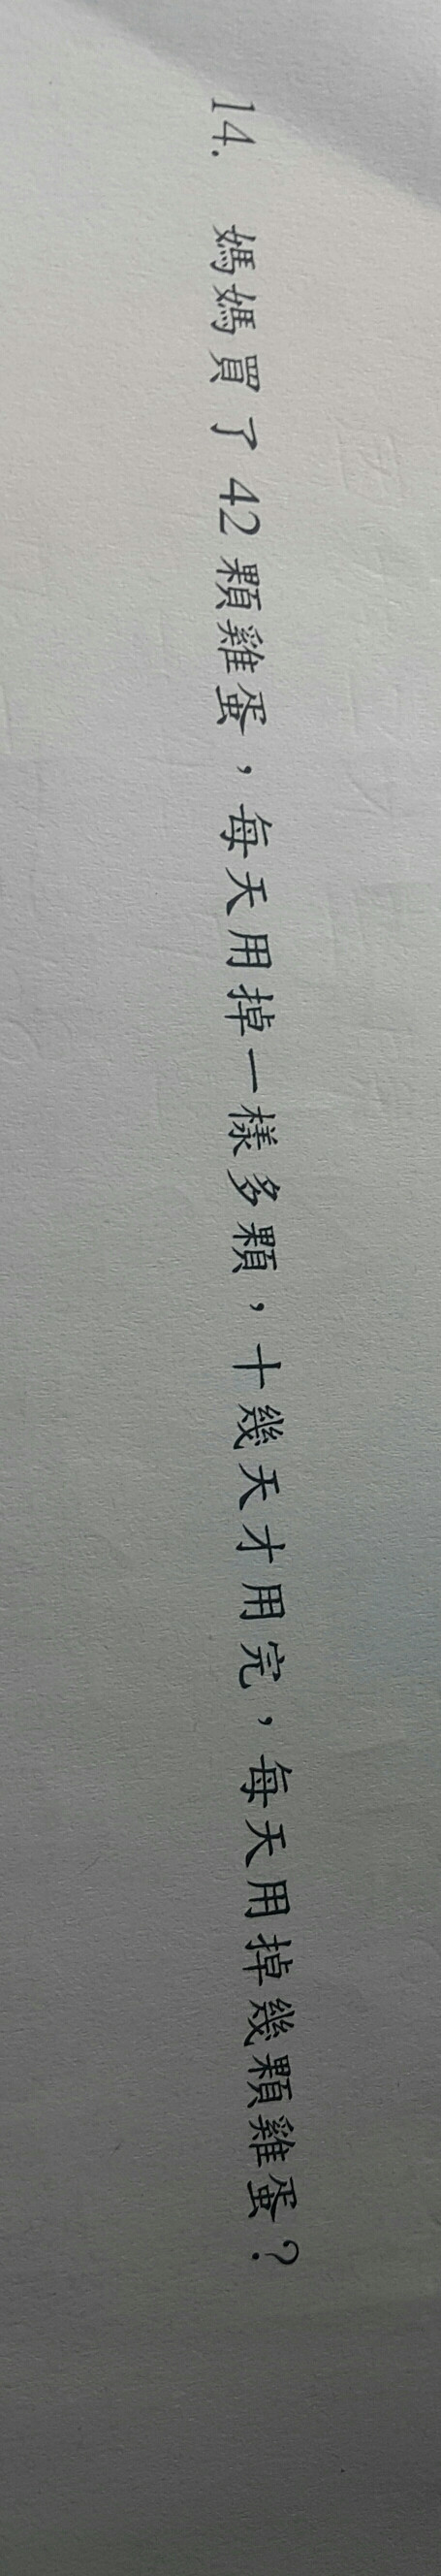 14. 媽媽買了42顆雞蛋，每天用掉一樣多顆，十幾天才用完，每天用掉幾顆雞蛋？